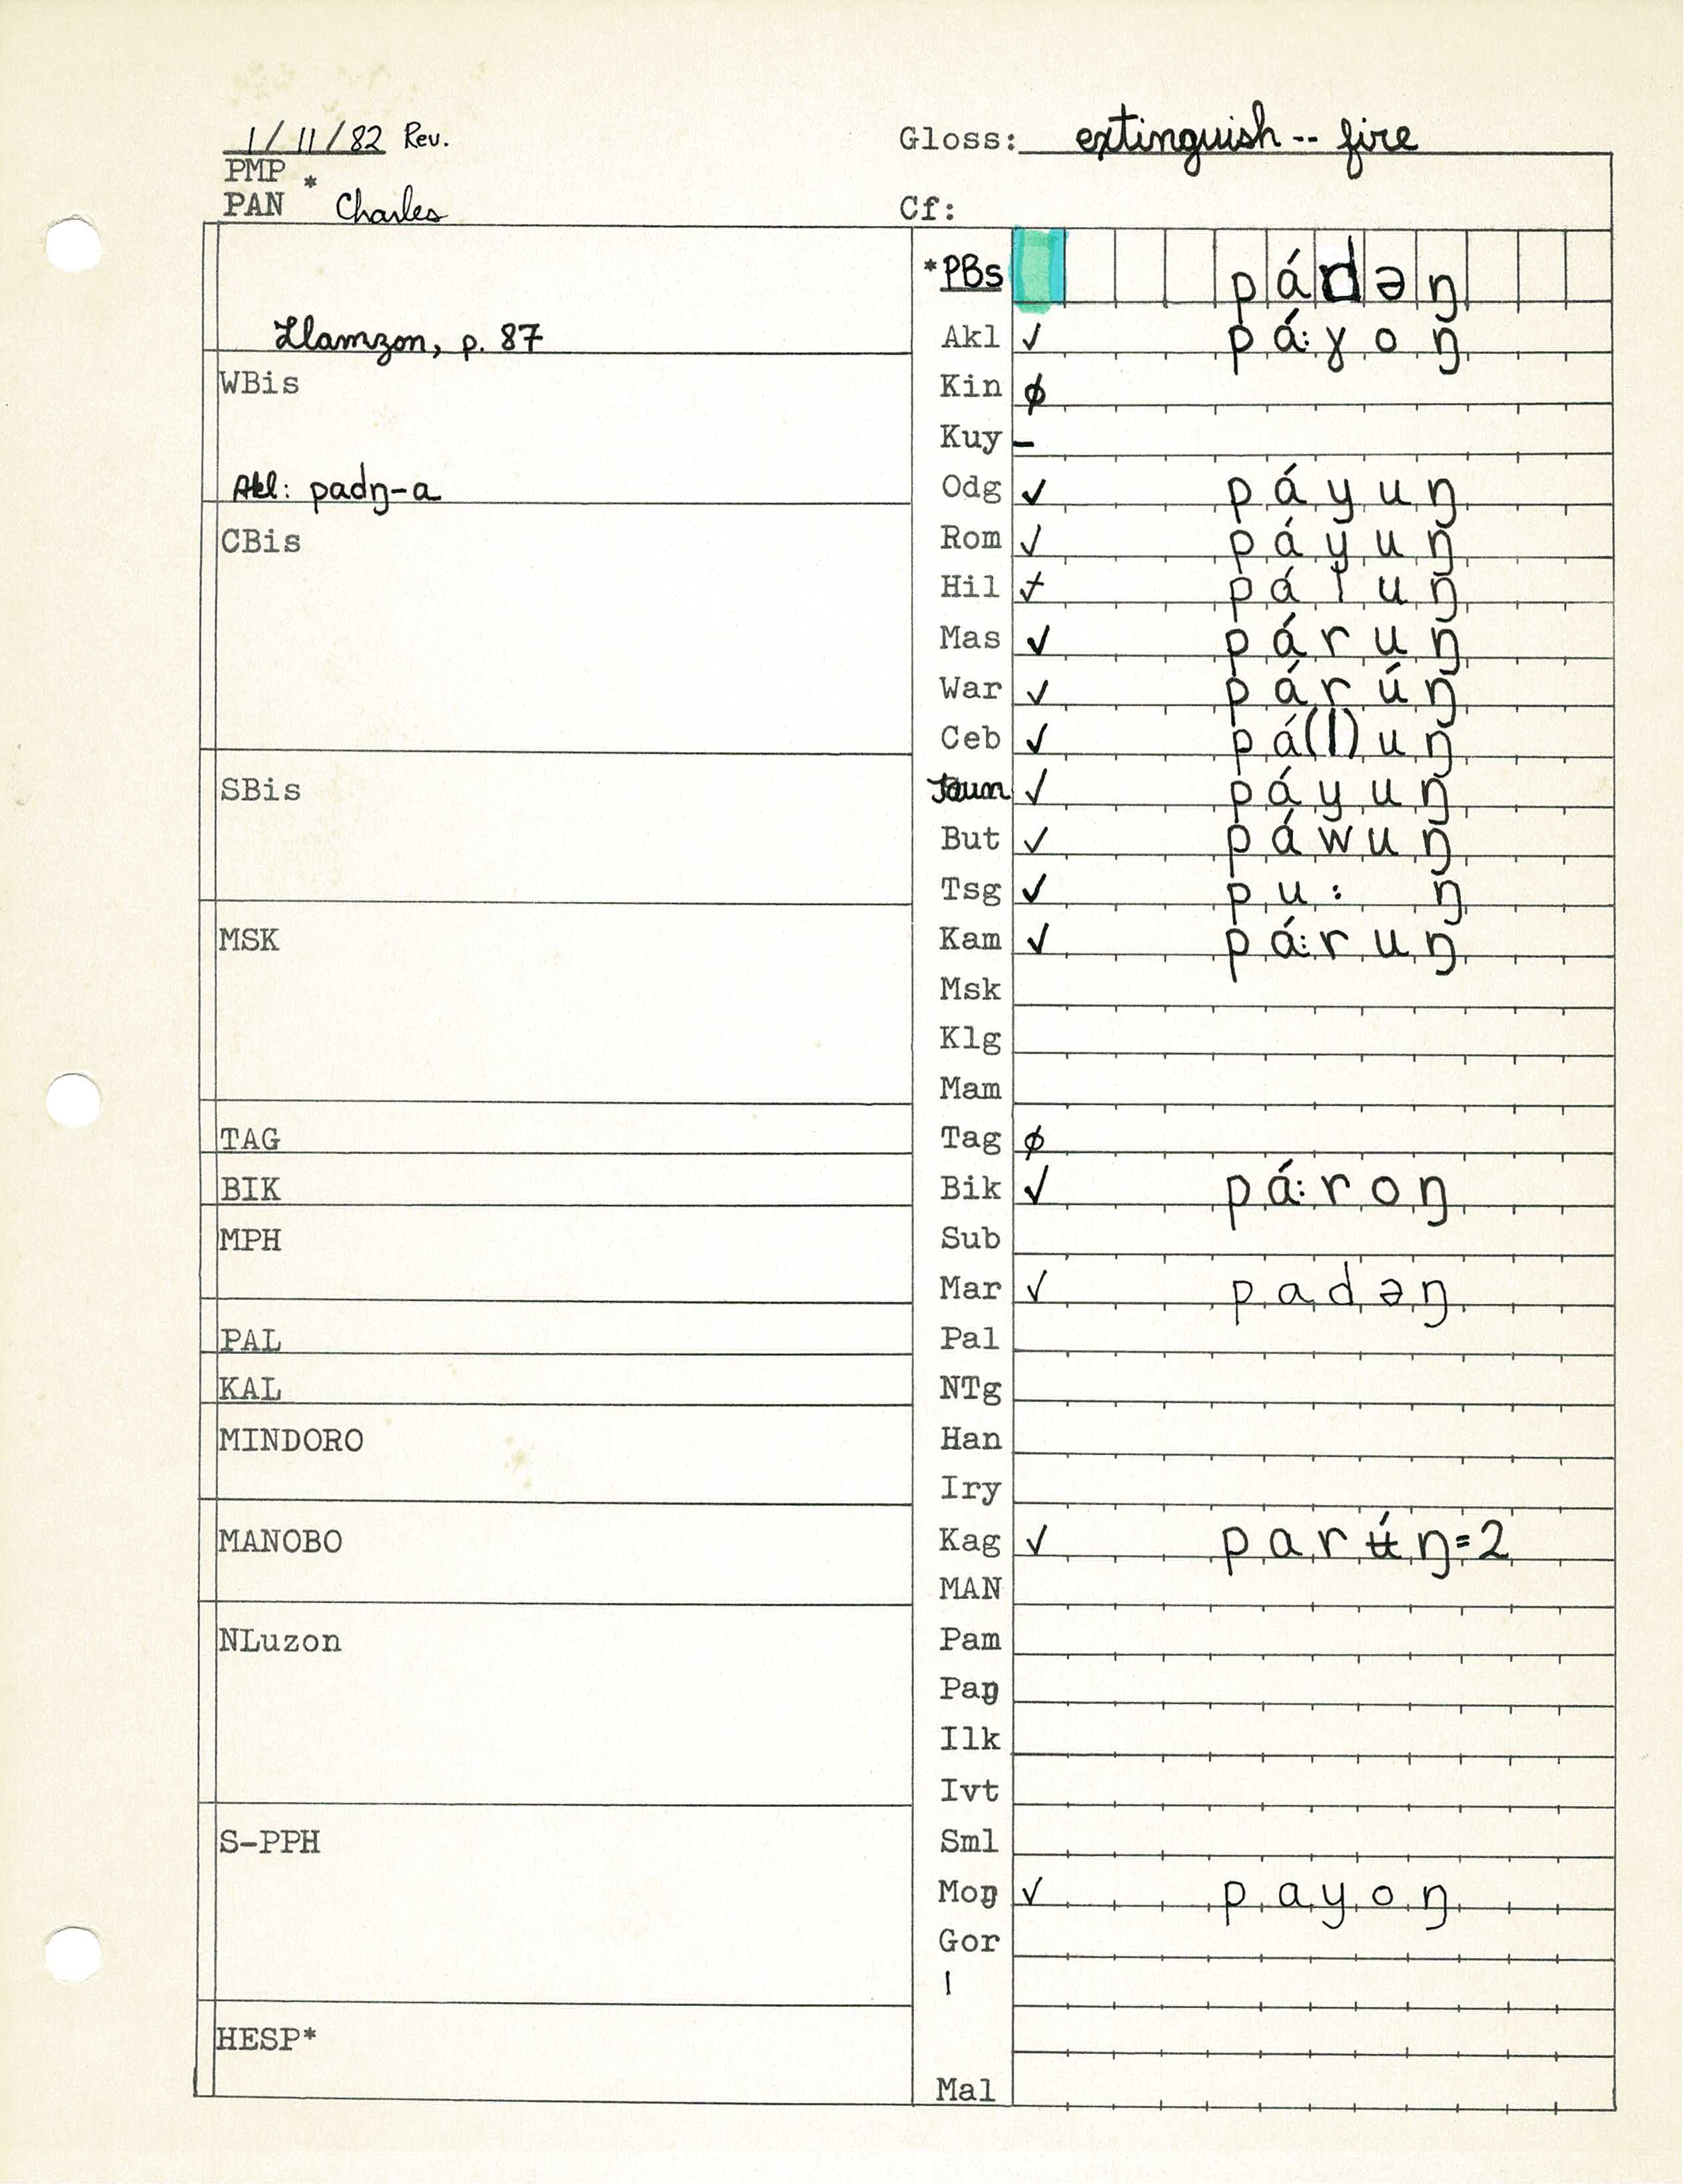 1/11/82 Rev.
Gloss: extinguish -- fire
PMP *
PAN Charles
Cf:
*PBs pádəŋ
Llamzon, p. 87
Akl ✓ pá:ɣoŋ
WBis
Kin ø
Kuy –
Akl: padŋ-a
Odg ✓ páyuŋ
CBis
Rom ✓ páyuŋ
Hil ✓ páluŋ
Mas ✓ páruŋ
War ✓ párúŋ
Ceb ✓ pá(l)uŋ
SBis
✓ páyuŋ
But ✓ páwuŋ
Tsg ✓ pu:ŋ
MSK
Kam ✓ pá:ruŋ
Msk
Klg
Mam
TAG
Tag ø
BIK
Bik ✓ pá:roŋ
MPH
Sub
Mar ✓ padəŋ
PAL
Pal
KAL
NTg
MINDORO
Han
Iry
MANOBO
Kag ✓ parʉ́ŋ=2
MAN
NLuzon
Pam
Paŋ
Ilk
Ivt
S-PPH
Sml
Moŋ ✓ payoŋ
Gor
|
HESP*
Mal